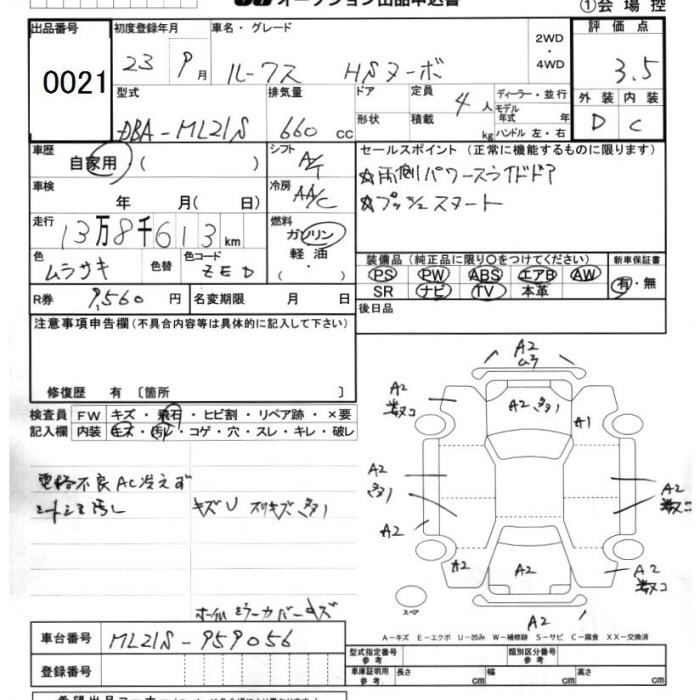 オークション出品申込書
①会場控
出品番号
0021
初度登録年月
23 9月
車名・グレード
ルークス HSターボ
2WD
・
4WD
評価点
3.5
外装 内装
D C
型式
DBA-ML21S
排気量
660 cc
ドア
形状
定員
4人
積載
kg
ディーラー・並行
モデル
年式 年
ハンドル 左・右
車歴
自家用 ( )
シフト
A/T
車検
年 月( 日)
冷房
AA/C
走行
13万8千613km
燃料
ガソリン
軽油
( ・ )
色
ムラサキ
色替
色コード
ZED
R券 9,560円
名変期限 月 日
セールスポイント (正常に機能するものに限ります)
☆両側パワースライドドア
☆プッシュスタート
装備品 (純正品に限り○をつけてください)
新車保証書
PS PW ABS エアB AW
SR ナビ TV 本革
有・無
後日品
注意事項申告欄(不具合内容等は具体的に記入して下さい)
修復歴 有 〔箇所 〕
検査員
記入欄
FW キズ・飛石・ヒビ割・リペア跡・×要
内装 キズ・汚レ・コゲ・穴・スレ・キレ・破レ
電格不良 AC冷えず
シートシミ汚レ
キズU スリキズ多
A2
ムラ
A2
A2
A1
A2
A2
A2
A2
A2
A2
A2
スペア
A-キズ E-エクボ U-凹み W-補修跡 S-サビ C-腐食 XX-交換済
車台番号
ML21S-959056
登録番号
型式指定番号
参考
類別区分番号
参考
車庫証明用
参考
長さ cm
幅 cm
高さ cm